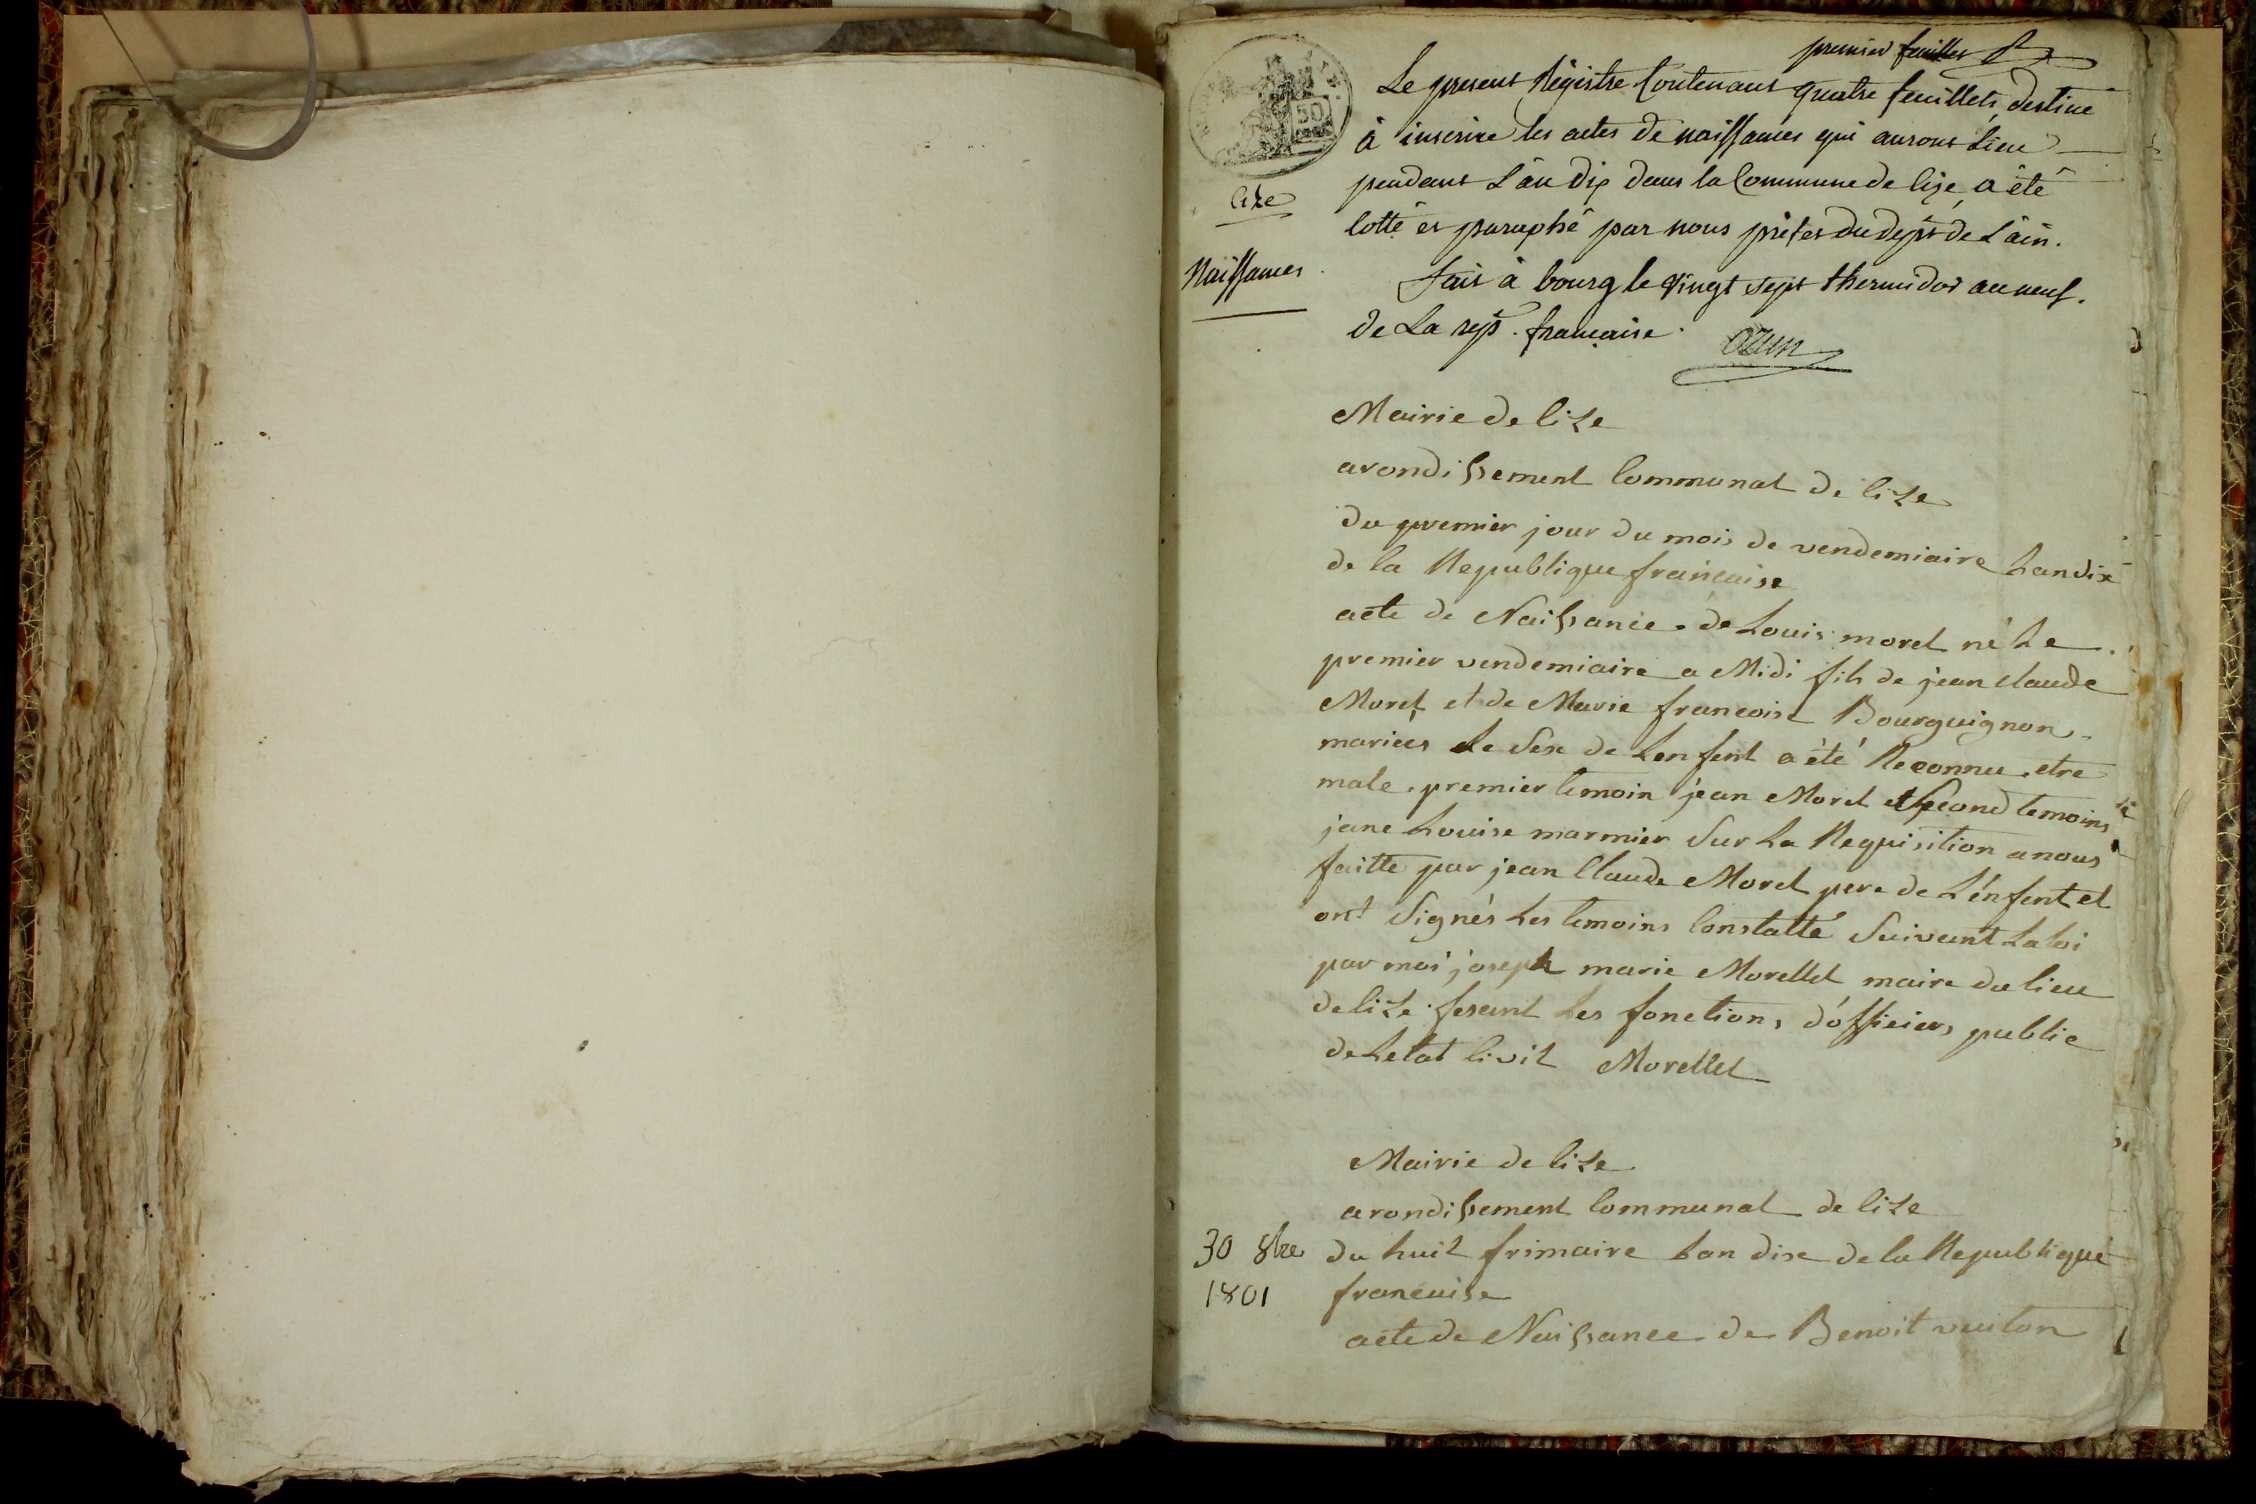 premier feuillet
Le present Régistre Contenant quatre feuillets, destiné
à inscrire les actes de naissances qui auront Lieu
pendant L'an dix dans la Commune de lize, a été
Cotté et paraphé par nous préfet du dépt de L'ain.
fait à bourg le vingt sept thermidor an neuf.
de La rép. française.
Ozun
50
Cize
Naissances
Mairie de Cize
arondissement Communal de Cize
du premier jour du mois de vendemiaire Landix
de la Republique française
acte de Naissance de Louis morel né Le
premier vendemiaire a Midi fils de jean claude
Morel et de Marie francoise Bourguignon
mariees Le Sexe de Lenfent a été Reconnu etre
male. premier temoin jean Morel et Second temoins
jane Louise marmier Sur La Requisition anous
faitte par jean Claude Morel pere de L'énfent et
ont Signés Les temoins Constatté Suivant La loi
par moi joseph marie Morellet maire du lieu
de Cize fesant Les fonctions d'officiers public
de Letat Civil Morellet
Mairie de Cize
arondissement Communal de Cize
30 8bre
1801
du huit frimaire Lan dixe de la Republique
francaise
acte de Naissance de Benoit vuiton